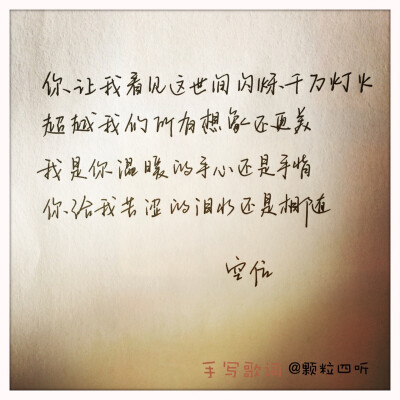 你让我看见这世间闪烁千万灯火
超越我们所有想象还更美
我是你温暖的手心还是手背
你给我苦涩的泪水还是相随
空信
手写歌词 @颗粒四听